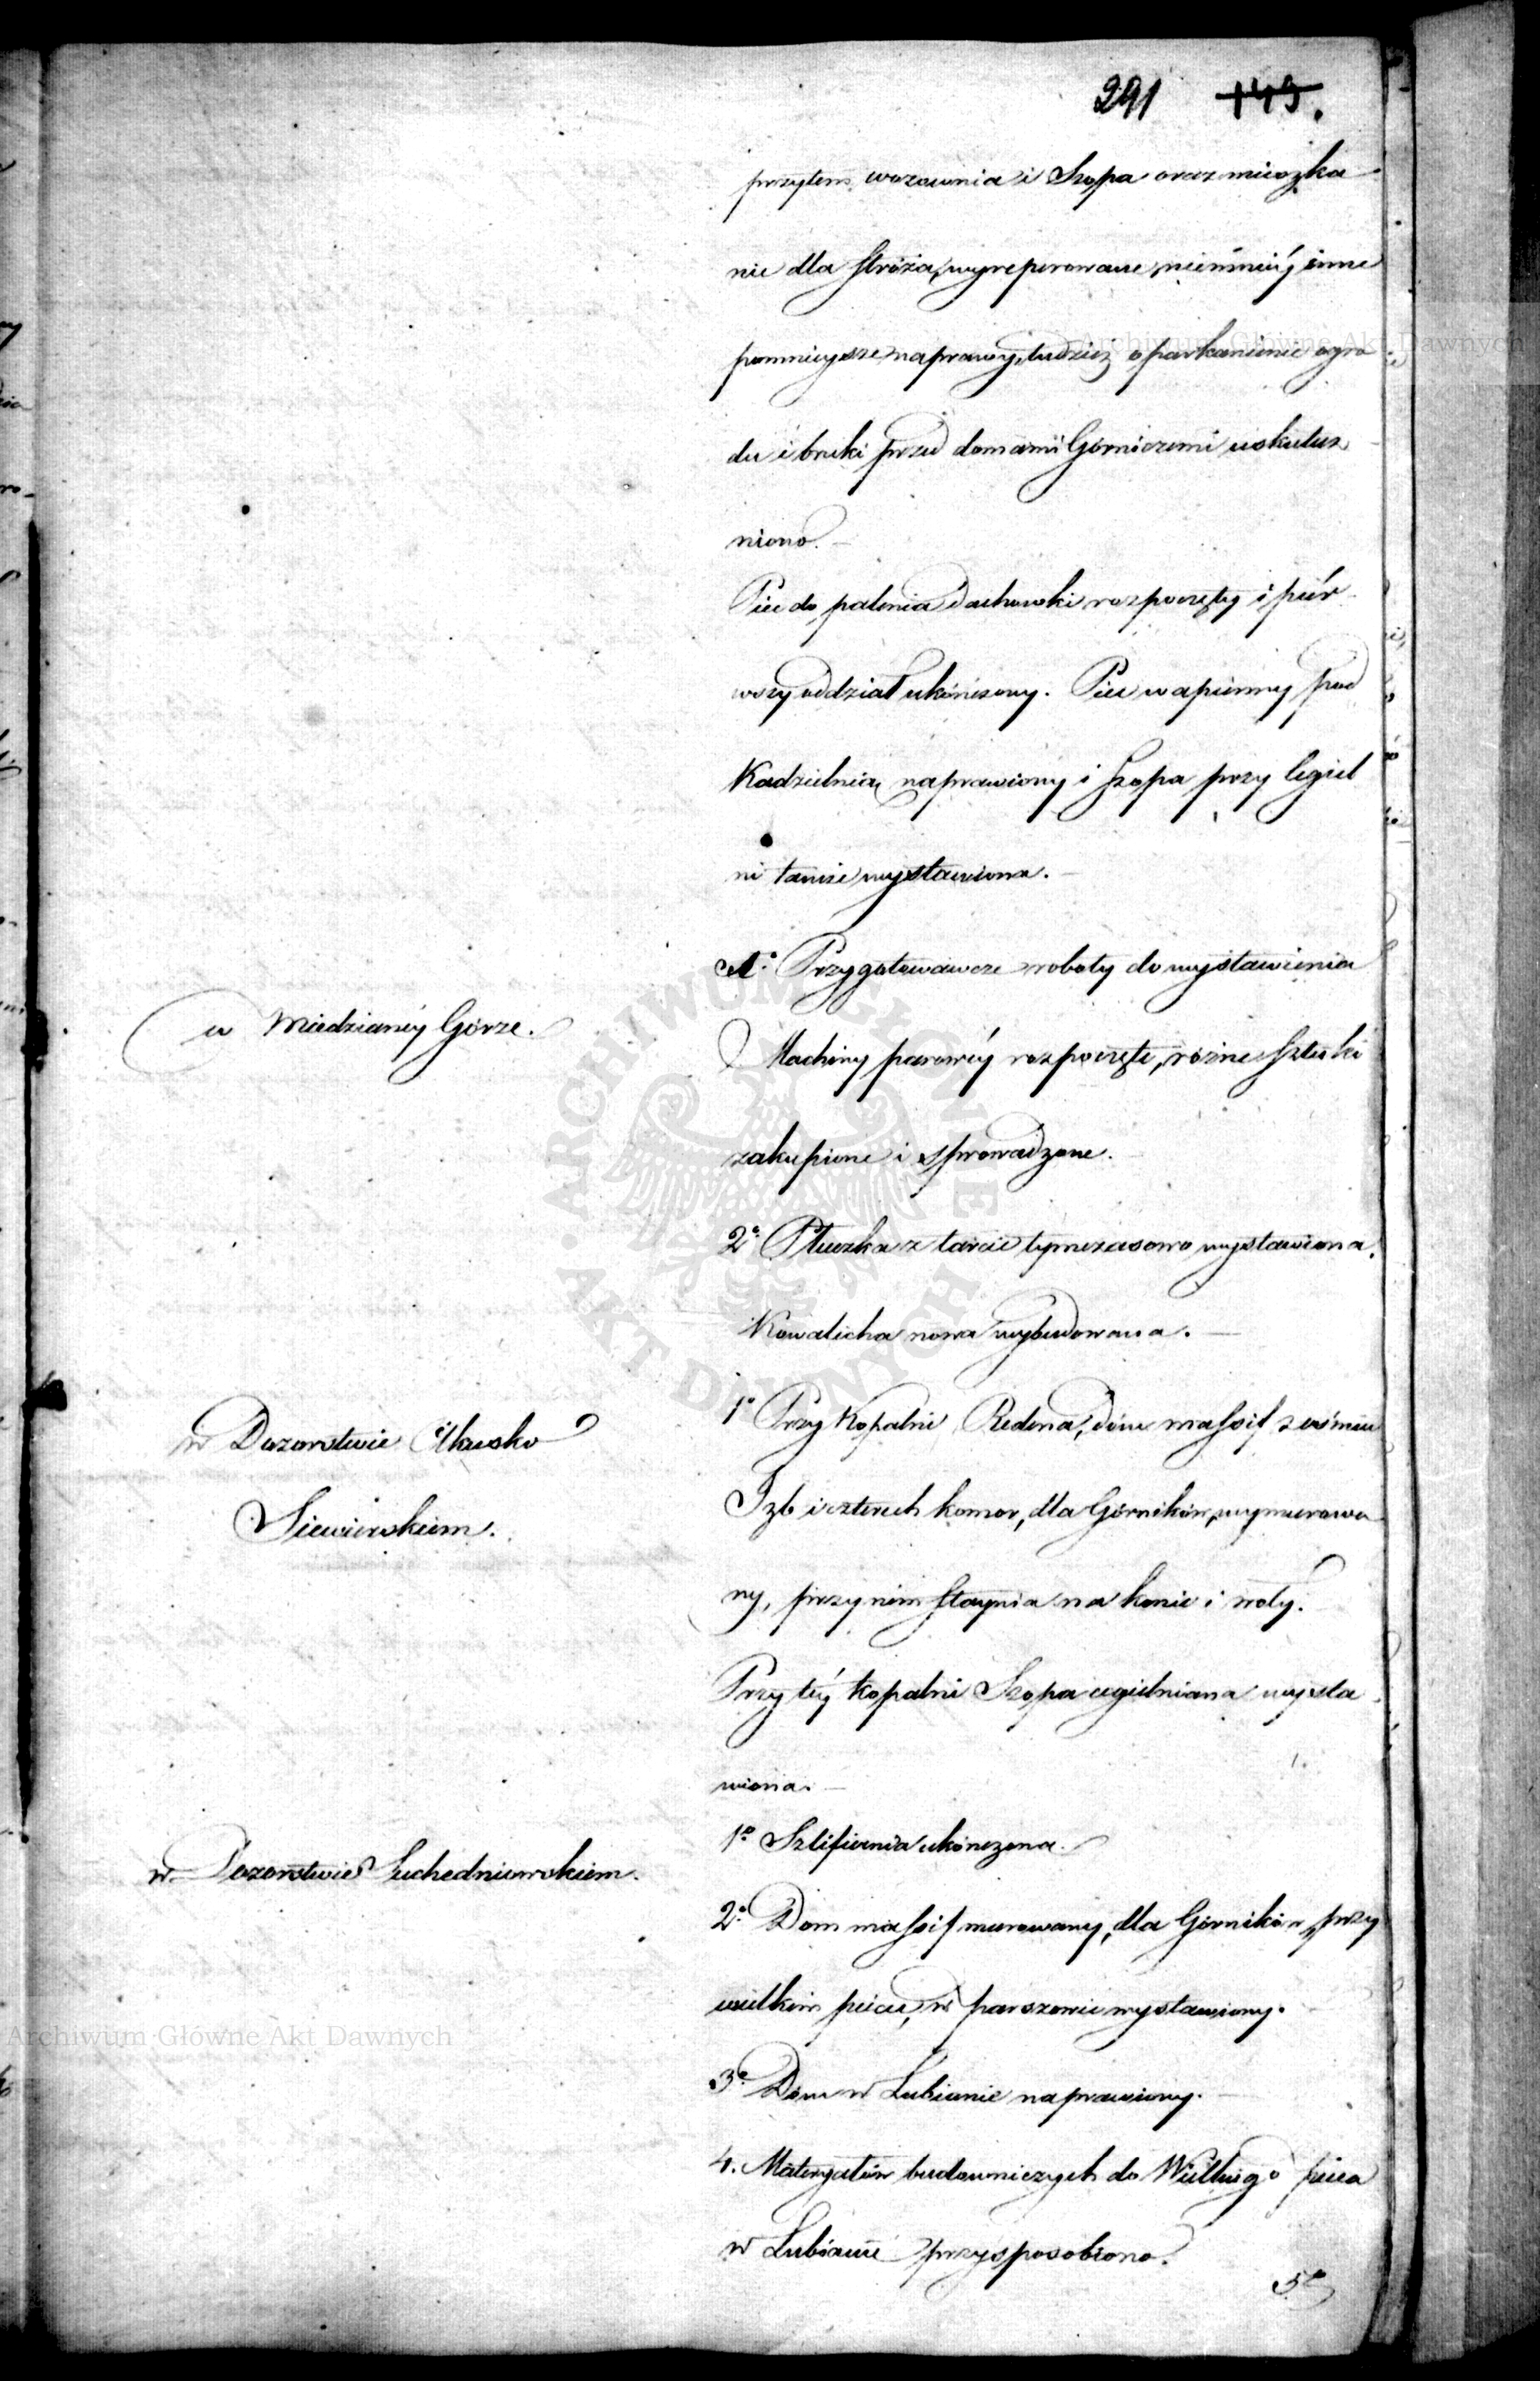 291 149.
przytem wozownia i Szopa oraz mieszka
nie dla stróża wyreperowane, niemniéy inne
pomnieysze naprawy, tudzież oparkanienie ogro
du i bruki przed domami Górniczemi uskutecz
niono.
Piec do palenia dachowki rozpoczęty i pier
wszy oddział ukończony. Piec wapienny pod
Kadzielnią naprawiony i Szopa przy Cegiel
ni tamże wystawiona.
w Miedzianéy Górze.
1º Przygotowawcze roboty do wystawienia
Machiny parowéy rozpoczęte, różne sztuki
zakupione i sprowadzone.
2º Płuczka z tarcic tymczasowo wystawiona.
Kowalicha nowa wybudowana.
w Dozorstwie Olkusko
Siewierskiem.
1º Przy Kopalni Redena, dóm massif z ośmiu
Izb i czterech komor, dla Górników, wymurowa
ny, przy nim staynia na konie i woły.
Przy téy kopalni Szopa cegielniana wysta
wiona.
w Dozorstwie Suchedniowskiem.
1º Szlifiernia ukończona.
2º Dom massif murowany, dla Górników, przy
wielkim piecu, w Parszowie wystawiony.
3º Dóm w Lubianie naprawiony.
4. Materyałów budowniczych do Wielkiego pieca
w Lubianie przysposobiono.
5º
Archiwum Główne Akt Dawnych
Archiwum Główne Akt Dawnych
ARCHIWUM GŁÓWNE · AKT DAWNYCH ·